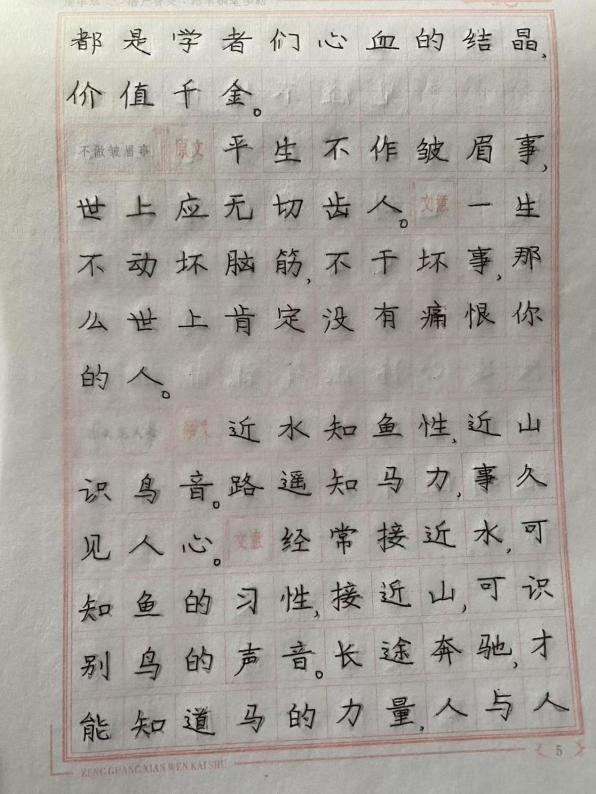 都是学者们心血的结晶,
价值千金。
不做皱眉事 原文 平生不作皱眉事,
世上应无切齿人。 文意 一生
不动坏脑筋,不干坏事,那
么世上肯定没有痛恨你
的人。
近水知鱼性,近山
识鸟音。路遥知马力,事久
见人心。 文意 经常接近水,可
知鱼的习性,接近山,可识
别鸟的声音。长途奔驰,才
能知道马的力量,人与人
5
ZENG GUANG XIAN WEN KAI SHU